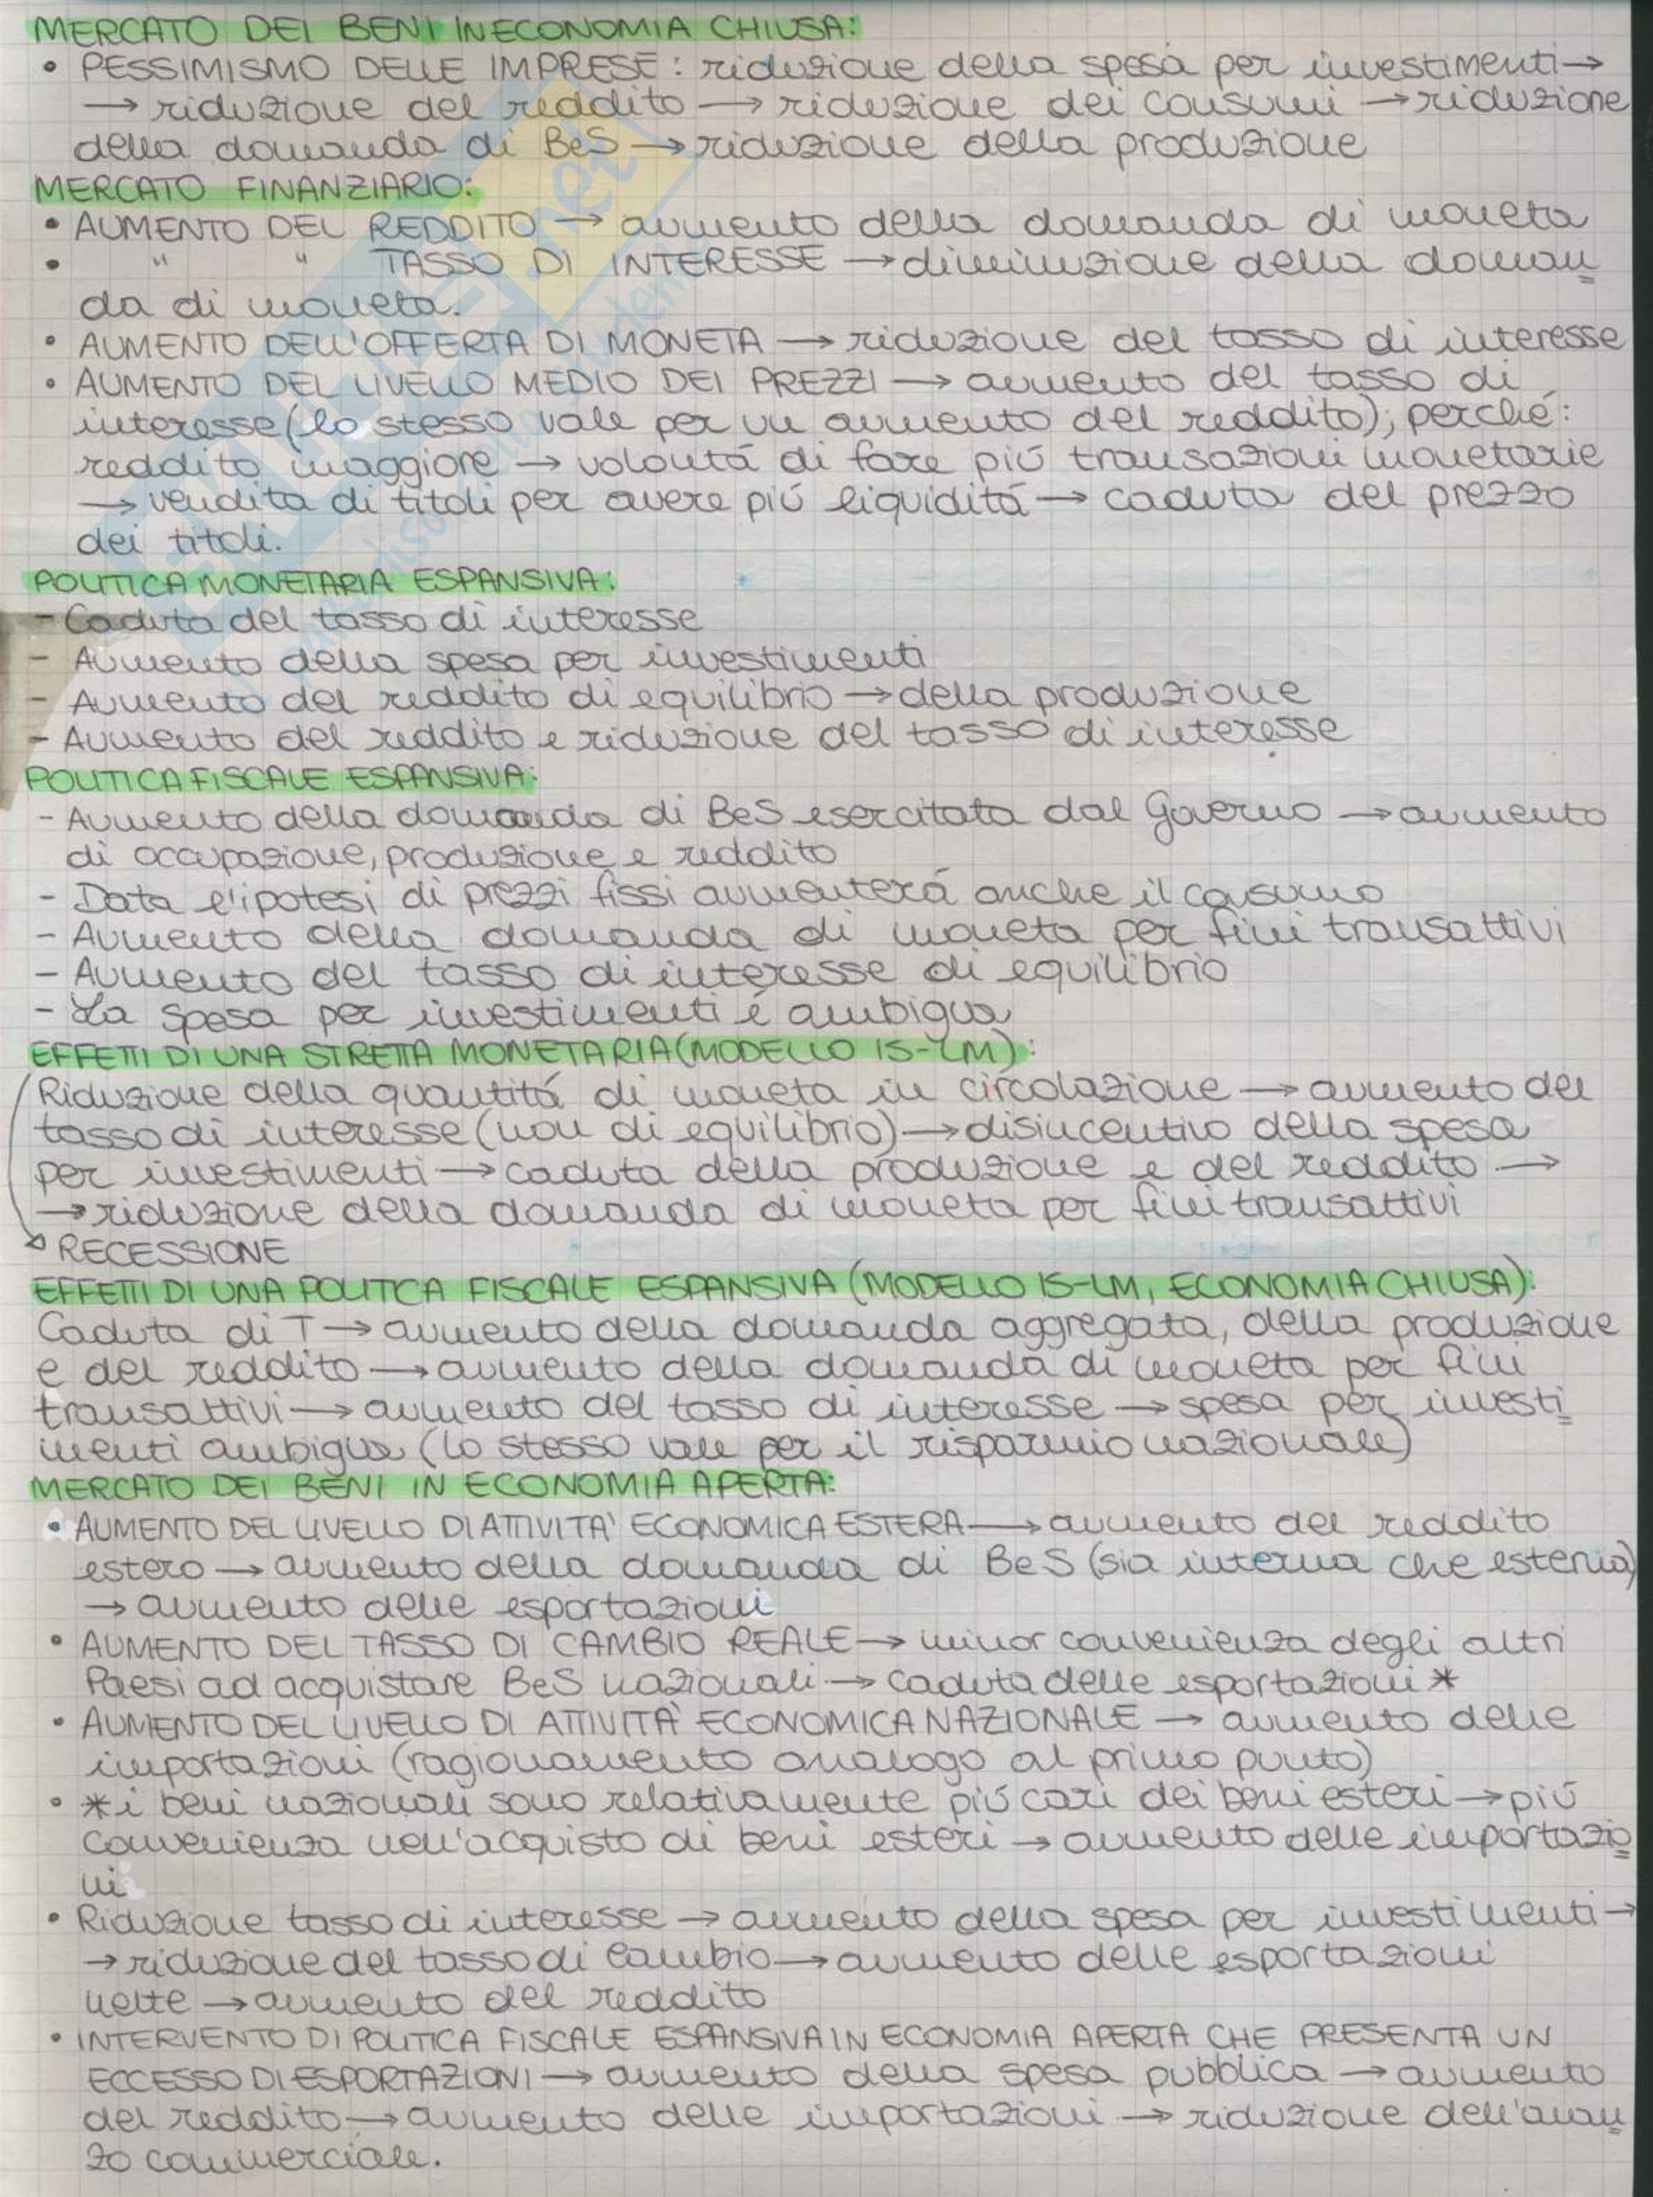 MERCATO DEI BENI IN ECONOMIA CHIUSA:
• PESSIMISMO DELLE IMPRESE: riduzione della spesa per investimenti →
→ riduzione del reddito → riduzione dei consumi → riduzione
della domanda di BeS → riduzione della produzione
MERCATO FINANZIARIO:
• AUMENTO DEL REDDITO → aumento della domanda di moneta
• " " TASSO DI INTERESSE → diminuzione della doman
da di moneta.
• AUMENTO DELL'OFFERTA DI MONETA → riduzione del tasso di interesse
• AUMENTO DEL LIVELLO MEDIO DEI PREZZI → aumento del tasso di
interesse (lo stesso vale per un aumento del reddito); perché:
reddito maggiore → volontá di fare piú transazioni monetarie
→ vendita di titoli per avere piú liquiditá → caduta del prezzo
dei titoli.
POLITICA MONETARIA ESPANSIVA:
- Caduta del tasso di interesse
- Aumento della spesa per investimenti
- Aumento del reddito di equilibrio → della produzione
- Aumento del reddito e riduzione del tasso di interesse
POLITICA FISCALE ESPANSIVA:
- Aumento della domanda di BeS esercitata dal Governo → aumento
di occupazione, produzione e reddito
- Data l'ipotesi di prezzi fissi aumenterá anche il consumo
- Aumento della domanda di moneta per fini transattivi
- Aumento del tasso di interesse di equilibrio
- La spesa per investimenti é ambigua
EFFETTI DI UNA STRETTA MONETARIA (MODELLO IS-LM):
Riduzione della quantitá di moneta in circolazione → aumento del
tasso di interesse (non di equilibrio) → disincentivo della spesa
per investimenti → caduta della produzione e del reddito →
→ riduzione della domanda di moneta per fini transattivi
RECESSIONE
EFFETTI DI UNA POLITICA FISCALE ESPANSIVA (MODELLO IS-LM, ECONOMIA CHIUSA):
Caduta di T → aumento della domanda aggregata, della produzione
e del reddito → aumento della domanda di moneta per fini
transattivi → aumento del tasso di interesse → spesa per investi
menti ambigua (lo stesso vale per il risparmio nazionale)
MERCATO DEI BENI IN ECONOMIA APERTA:
• AUMENTO DEL LIVELLO DI ATTIVITA' ECONOMICA ESTERA → aumento del reddito
estero → aumento della domanda di BeS (sia interna che esterna)
→ aumento delle esportazioni
• AUMENTO DEL TASSO DI CAMBIO REALE → minor convenienza degli altri
Paesi ad acquistare BeS nazionali → caduta delle esportazioni *
• AUMENTO DEL LIVELLO DI ATTIVITÀ ECONOMICA NAZIONALE → aumento delle
importazioni (ragionamento analogo al primo punto)
• * i beni nazionali sono relativamente piú cari dei beni esteri → piú
convenienza nell'acquisto di beni esteri → aumento delle importazio
ni
• Riduzione tasso di interesse → aumento della spesa per investimenti →
→ riduzione del tasso di cambio → aumento delle esportazioni
nette → aumento del reddito
• INTERVENTO DI POLITICA FISCALE ESPANSIVA IN ECONOMIA APERTA CHE PRESENTA UN
ECCESSO DI ESPORTAZIONI → aumento della spesa pubblica → aumento
del reddito → aumento delle importazioni → riduzione dell'avan
zo commerciale.